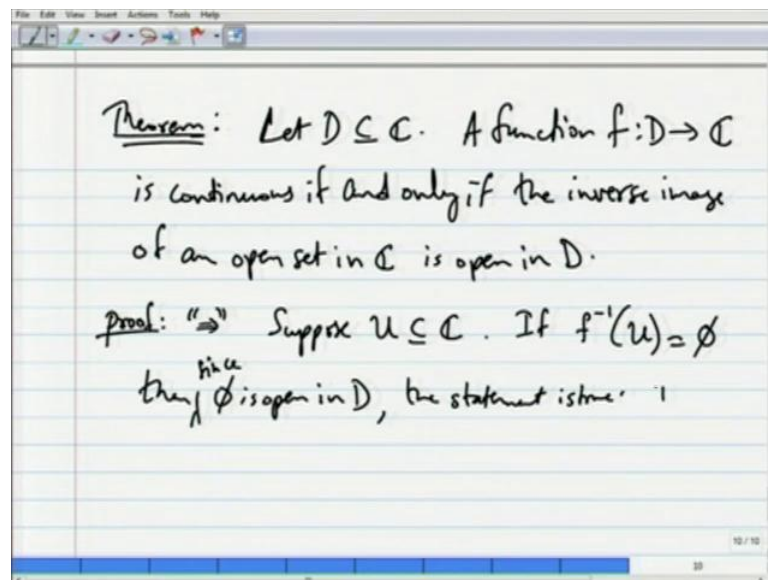 File Edit View Insert Actions Tools Help
Theorem: Let D ⊆ ℂ. A function f: D → ℂ
is continuous if and only if the inverse image
of an open set in ℂ is open in D.
Proof: "⇒" Suppose U ⊆ ℂ. If f⁻¹(U) = ∅
since
then ∅ is open in D, the statement is true.
10 / 10
10